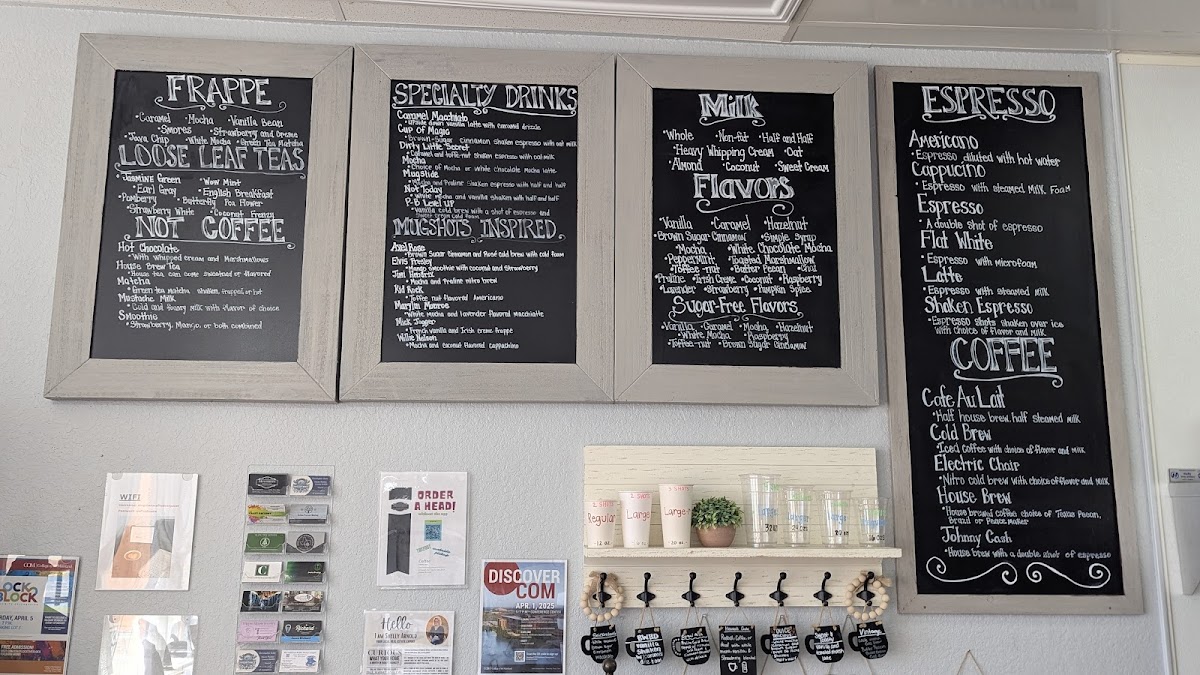 FRAPPE
•Caramel •Mocha •Vanilla Bean
•Smores •Strawberry and Creme
•Java Chip •White Mocha •Green Tea Matcha
LOOSE LEAF TEAS
•Jasmine Green •Wow Mint
•Earl Gray •English Breakfast
•Pomberry •Butterfly Pea Flower
•Strawberry White •Coconut Frenzy
NOT COFFEE
Hot Chocolate
•With whipped cream and Marshmallows
House Brew Tea
•House tea can come sweetned or flavored
Matcha
•Green tea matcha shaken, frapped or hot
Mustache Milk
•Cold and foamy milk with flavor of choice
Smoothie
•Strawberry, Mango, or both combined
SPECIALTY DRINKS
Caramel Macchiato
•Upside down vanilla latte with caramel drizzle
Cup of Magic
•Brown Sugar Cinnamon shaken espresso with oat milk
Dirty Little Secret
•Caramel and toffee-nut shaken espresso with oat milk
Mocha
•Choice of Mocha or White Chocolate Mocha latte
Mugslide
•Mocha and Praline shaken espresso with half and half
Not Today
•White mocha and vanilla shaken with half and half
P-B Level UP
•Vanilla cold brew with a shot of espresso and
sweet cream cold foam
MUGSHOTS INSPIRED
Axel Rose
•Brown Sugar Cinnamon and Rose cold brew with cold foam
Elvis Presley
•Mango smoothie with coconut and Strawberry
Jimi Hendrix
•Mocha and Praline nitro brew
Kid Rock
•Toffee nut flavored Americano
Marylin Monroe
•White mocha and lavender flavored macchiatto
Mick Jagger
•French vanilla and Irish creme frappe
Willie Nelson
•Mocha and coconut flavored cappachino
Milk
•Whole •Non-fat •Half and Half
•Heavy Whipping Cream •Oat
•Almond •Coconut •Sweet Cream
Flavors
•Vanilla •Caramel •Hazelnut
•Brown Sugar Cinnamon •Simple Syrup
•Mocha •White Chocolate Mocha
•Peppermint •Toasted Marshmallow
•Toffee-nut •Butter Pecan •Chai
•Praline •Irish Creme •Coconut •Raspberry
•Lavender •Strawberry •Pumpkin Spice
Sugar-Free Flavors
•Vanilla •Caramel •Mocha •Hazelnut
•White Mocha •Raspberry
•Toffee-nut •Brown Sugar Cinnamon
ESPRESSO
Americano
•Espresso diluted with hot water
Cappucino
•Espresso with steamed Milk Foam
Espresso
•A double shot of espresso
Flat White
•Espresso with microfoam
Latte
•Espresso with steamed milk
Shaken Espresso
•Espresso shots shaken over ice
with choice of flavor and milk
COFFEE
Cafe Au Lait
•Half house brew, half steamed milk
Cold Brew
•Iced coffee with choice of flavor and milk
Electric Chair
•Nitro cold brew with choice of flavor and milk
House Brew
•House brewed coffee choice of Texas Pecan,
Brazil or Peace Maker
Johnny Cash
•House brew with a double shot of espresso
WIFI
ORDER
A HEAD!
Regular
12 oz
Large
Large
20 oz
Large
32 oz
Large
Large
Large
16 oz
COM
BLOCK
FREE ADMISSION
Hello
I AM SHELLY ARNOLD
CURIOUS
WHAT YOUR HOME
DISCOVER
COM
APR. 1, 2025